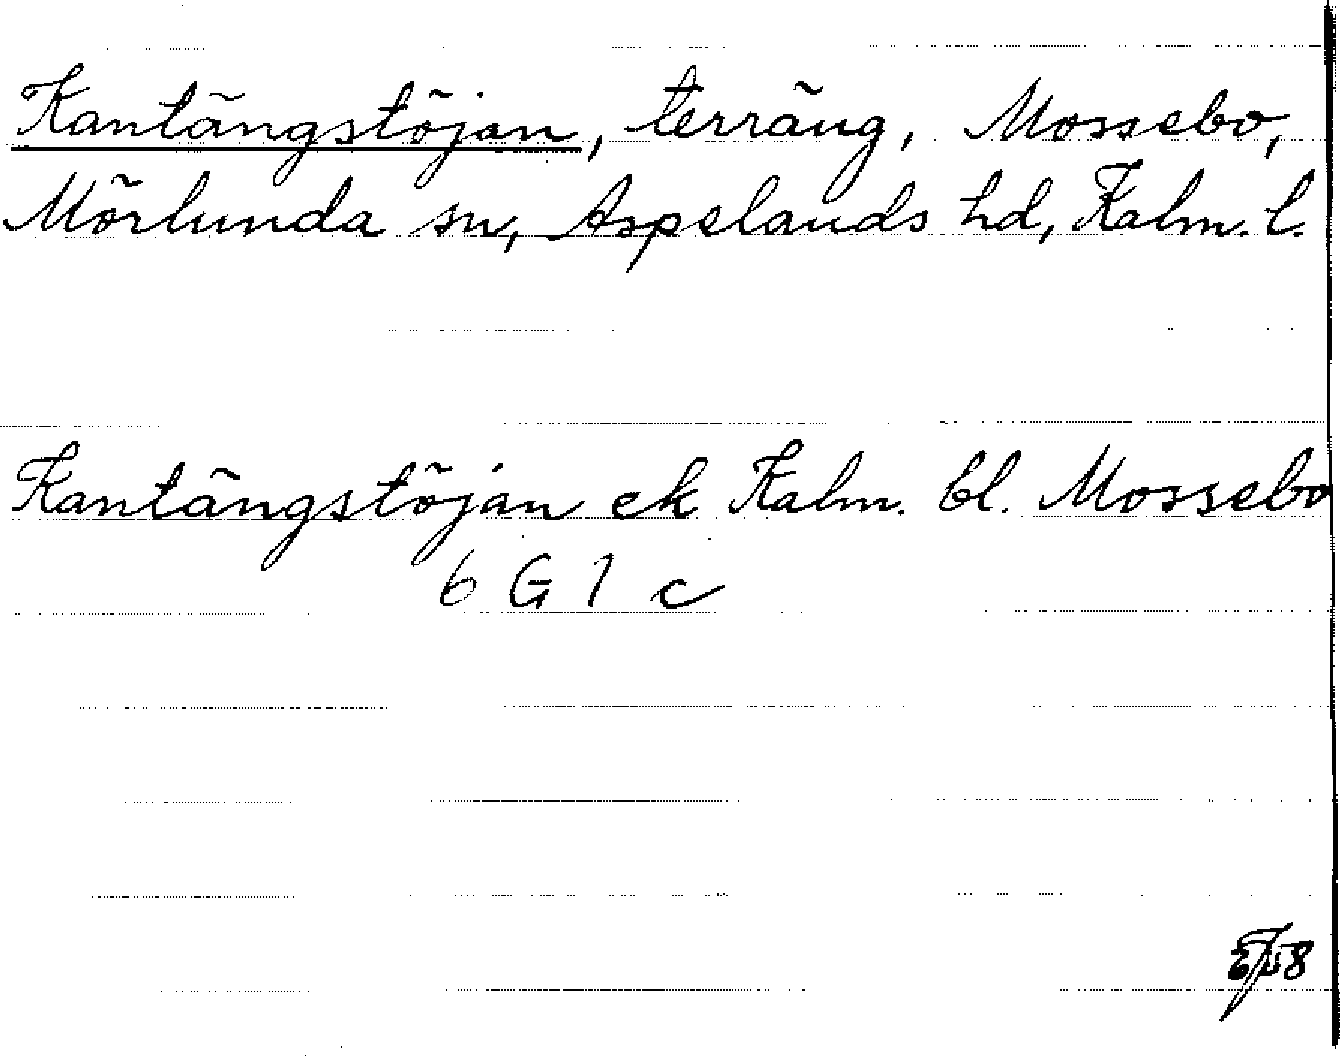 Kantängstöjan, terräng, Mossebo,
Mörlunda sn, Aspelands hd, Kalm. l.
Kantängstöjan ek Kalm. bl. Mossebo
6 G 1 c